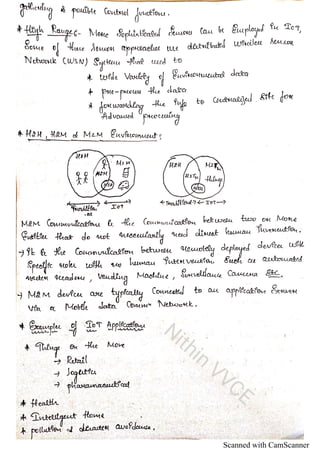 gathering & possible Control function.
* High Range :- More Sophisticated Sensors Can be Employed in IOT,
Some of these Sensor approaches use distributed Wireless Sensor
Network (WSN) System that used to
* Wide Variety of Environmental data
* pre-process the data
* forwarding the info to Centralized Site for
Advanced processing
* H2H, H2M & M2M Environment:
H2H M2M H2M
H2H M2M things
IOT IOT
M2M Communication is the Communication between two or More
Entities that do not necessarily need direct human Intervention.
→ It is the Communication between remotely deployed device with
Specific roles with no human Intervention Such as automated
readers, Vending Machine, Surveillance Camera Etc.
→ M2M device are typically Connected to an application Server
Via a Mobile data Comm Network.
* Examples of IOT Applications
* Things on the Move
→ Retail
→ logistics
→ pharamanuetical
* Health
* Intelligent Home
* pollution & disaster avoidance.
Nithin VVCE
Scanned with CamScanner